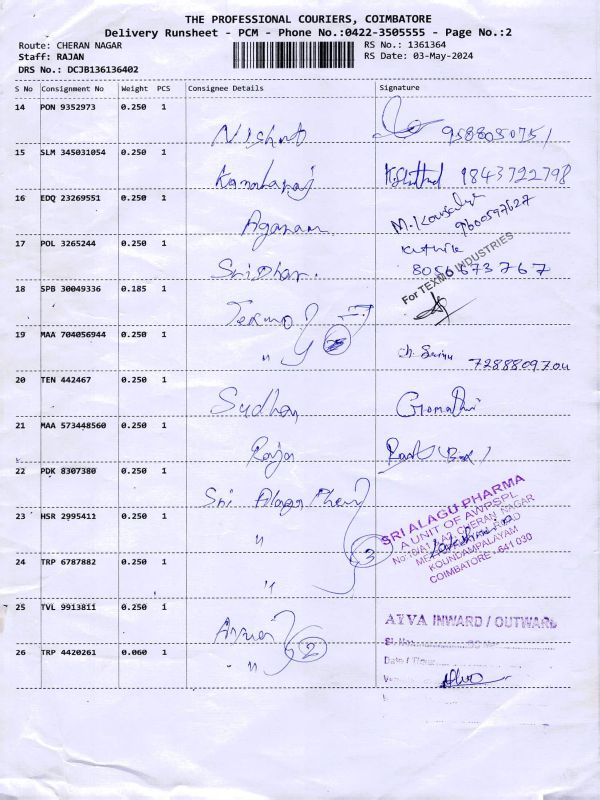 THE PROFESSIONAL COURIERS, COIMBATORE
Delivery Runsheet - PCM - Phone No.:0422-3505555 - Page No.:2
Route: CHERAN NAGAR
RS No.: 1361364
Staff: RAJAN
RS Date: 03-May-2024
DRS No.: DCJB136136402
S No Consignment No Weight PCS Consignee Details Signature
14 PON 9352973 0.250 1
9588050751
15 SLM 345031054 0.250 1 Kamalaraj 9843722798
16 EDQ 23269551 0.250 1 Aganam M. Kousalya
9600597627
17 POL 3265244 0.250 1 Sridhar.
8056673767
For TEXMO INDUSTRIES
18 SPB 30049336 0.185 1 Texmo
19 MAA 704056944 0.250 1 "
7288809704
20 TEN 442467 0.250 1 Sudhan Gomathi
21 MAA 573448560 0.250 1 Raja
22 PDK 8307380 0.250 1 Sri Alagu
SRI ALAGU PHARMA
A UNIT OF AWPSPL
23 HSR 2995411 0.250 1 "
CHERAN NAGAR
ROAD
KOUNDAMPALAYAM
COIMBATORE - 641 030
3
24 TRP 6787882 0.250 1 "
25 TVL 9913811 0.250 1
AIVA INWARD / OUTWARD
2
26 TRP 4420261 0.060 1 - "
Date / Time